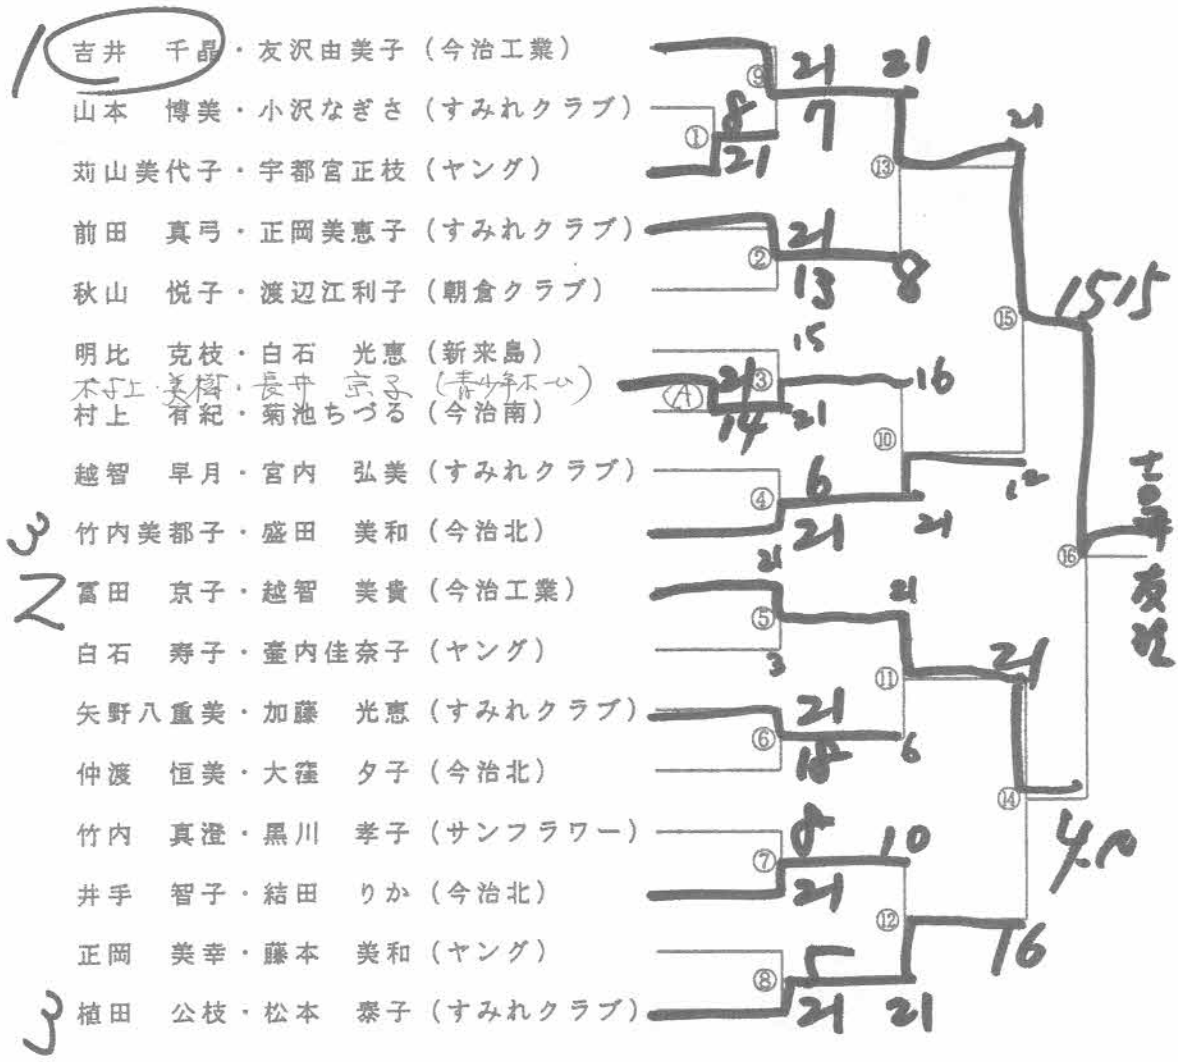 1 吉井 千晶・友沢由美子(今治工業)
山本 博美・小沢なぎさ(すみれクラブ)
苅山美代子・宇都宮正枝(ヤング)
前田 真弓・正岡美恵子(すみれクラブ)
秋山 悦子・渡辺江利子(朝倉クラブ)
明比 克枝・白石 光恵(新来島)
長井 京子
村上 有紀・菊池ちづる(今治南)
越智 早月・宮内 弘美(すみれクラブ)
3 竹内美都子・盛田 美和(今治北)
2 冨田 京子・越智 美貴(今治工業)
白石 寿子・臺内佳奈子(ヤング)
矢野八重美・加藤 光恵(すみれクラブ)
仲渡 恒美・大窪 夕子(今治北)
竹内 真澄・黒川 孝子(サンフラワー)
井手 智子・結田 りか(今治北)
正岡 美幸・藤本 美和(ヤング)
3 植田 公枝・松本 泰子(すみれクラブ)
⑨ 21 7
① 8 21
② 21 13
Ⓐ 21 14
③ 15 21
④ 6 21
⑤ 21 3
⑥ 21 18
⑦ 8 21
⑧ 5 21
⑬ 21 8
⑩ 16 21
⑪ 21 6
⑫ 10 21
⑮ 21 12
⑭ 21 16
⑯ 15 15
4
吉井
友沢